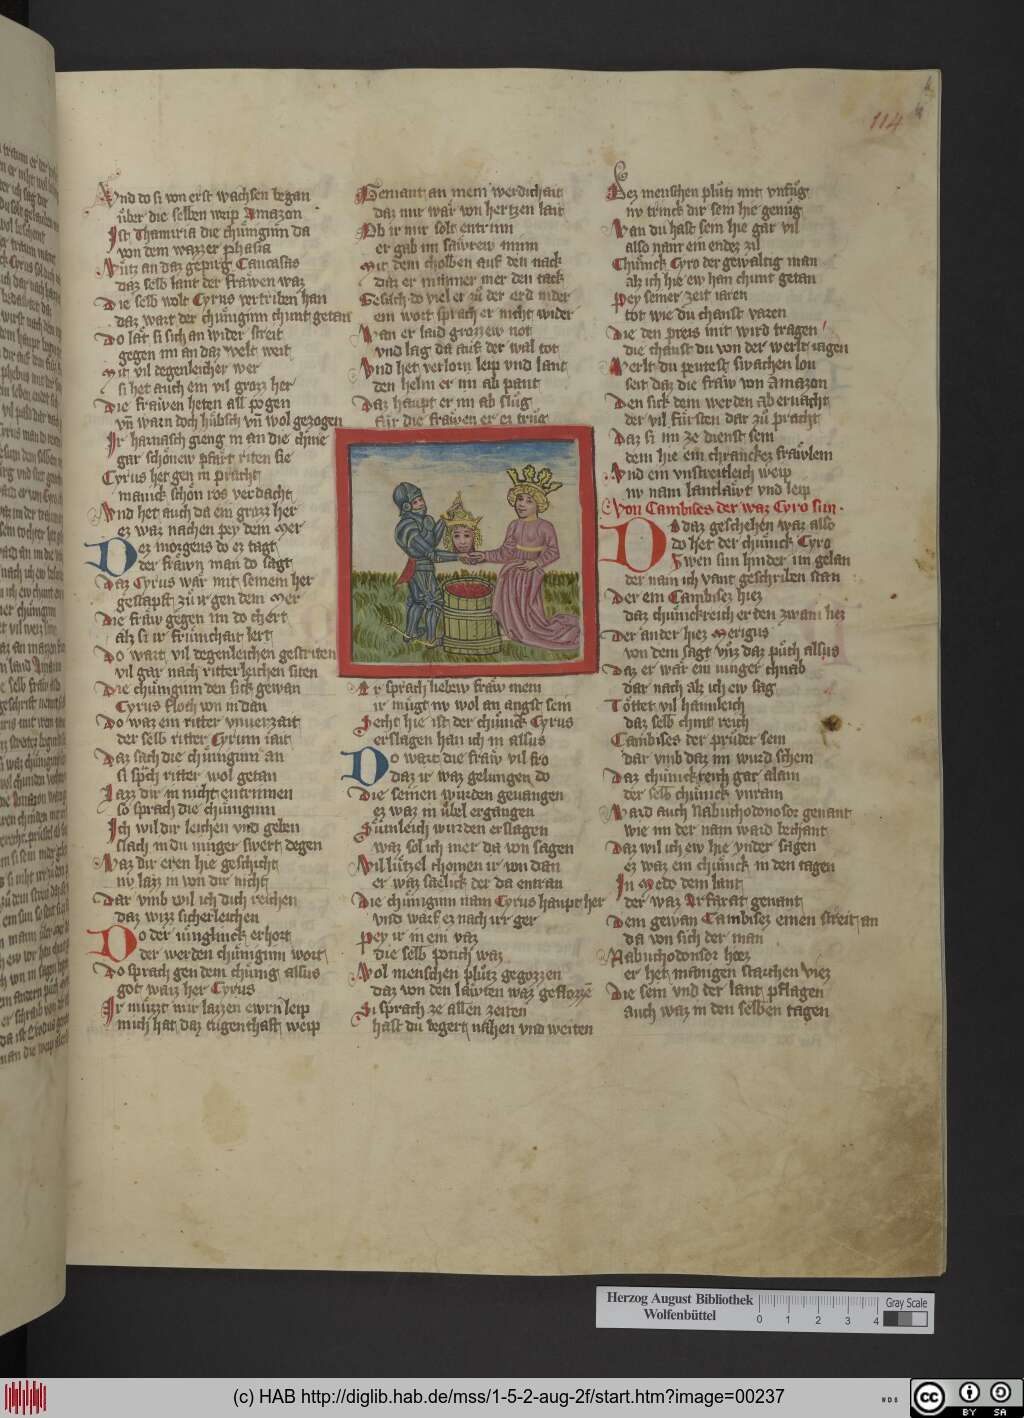 114
Vnd do si von erst wachsen began
über die selben weip Amazon
Ist Thamiria die chünginn da
von dem wazzer phasia
Vntz an daz gepirg Caucasas
daz selb lant der frawen waz
Die selb wolt Cyrus vertriben han
daz wart der chünginn chunt getan
Do lat si sich an wider streit
gegen im an daz velt weit
Mit vil degenleicher wer
si het auch ein vil groz her
Die frawen heten all pogen
vn̄ warn doch hübsch vn̄ wol gezogen
Ir harnasch gieng in an die chnie
gar schönew pfärt riten sie
Cyrus her gen in pracht
manick schön ros verdacht
Vnd het auch da ein groz her
ez waz nachen pey dem Mer
Dez morgens do ez tagt
der frawn man do sagt
Daz Cyrus wär mit seinem her
gestapft zu ir gen dem Mer
Die fraw gegen im do chert
alz si ir frümchait lert
Do wart vil degenleichen gestriten
vil gar nach ritterleichen siten
Die chünginn den sick gewan
Cyrus floch von in dan
Do waz ein ritter vnuerzait
der selb ritter Cyrum iait
Daz sach die chünginn an
si sp̄ch ritter wol getan
Lazz dir in nicht entrinnen
so sprach die chünginn
Ich wil dir leichen vnd geben
slach in du iunger swert degen
Waz dir eren hie geschicht
nv lazz in von dir nicht
Dar vmb wil ich dich reichen
daz wizz sicherleichen
Do der iünglinck erhort
der werden chünginn wort
Do sprach gen dem chünig alsus
got waiz her Cyrus
Ir müzzt mir lazzen ewrn leip
mich hat daz tugenthaft weip
Gemant an mein werdichait
daz mir wär von hertzen lait
Ob ir mir solt entrinn
er gab im sawrew minn
Mit dem cholben auf den nack
daz er nimmer mer den tack
Gesach do viel er zu der erd nider
ein wort sprach er nicht wider
Wan er laid grozzew not
vnd lag da auf der wal tot
Vnd het verlorn leip vnd lant
den helm er im ab pant
Daz haupt er im ab slug
für die frawen er ez trug
Er sprach liebew fraw mein
ir mügt nv wol an angst sein
Secht hie ist der chünick Cyrus
erslagen han ich in alsus
Do wart die fraw vil fro
daz ir waz gelungen do
Die seinen wurden geuangen
ez waz in übel ergangen
Sümleich wurden erslagen
waz sol ich mer da von sagen
Vil lützel chomen ir von dan
er waz saelick der da entran
Die chünginn nam Cyrus haupt her
vnd warf ez nach irr ger
Pey ir in ein vaz
die selb potich waz
Vol menschen plutz gegozzen
daz von den läwten waz geflozzē
Si sprach ze allen zeiten
hast du begert nahen vnd weiten
Dez menschen plutz mit vnfug
nv trinck dir sein hie genug
Wan du hast sein hie gar vil
also nam ein endez zil
Chünick Cyro der gewaltig man
alz ich hie ew han chunt getan
Pey seiner zeit iaren
tot wie du chanst varen
Die den preis mit wird tragen
die chanst du von der werlt iagen
Werlt du peutest swachen lon
seit daz die fraw von Amazon
Den sick dem werden ab ernacht
der vil fürsten dar zu pracht
Daz si im ze dienst sein
dem hie ein chranckez fräwlein
Vnd ein vnstreitleich weip
nv nam lantläwt vnd leip
Von Cambises der waz Cyro sun
Do daz geschehen waz also
do het der chünick Cyro
Zwen sun hinder im gelan
der nam ich vant geschriben stan
Der ein Cambisez hiez
daz chünickreich er den zwain liez
Der ander hiez Merigus
von dem sagt vnz daz puch alsus
Daz er wär ein iunger chnab
dar nach alz ich ew sag
Tötet vil haimleich
daz selb chint reich
Cambises der pruder sein
dar vmb daz im wurd schein
Daz chünickreich gar alain
der selb chünick vnrain
Ward auch Nabuchodonosor genant
wie im der nam ward bechant
Daz wil ich ew hie vnder sagen
ez waz ein chünick in den tagen
In Medo dem lant
der waz Arfarat genant
Dem gewan Cambisez einen streit an
da von sich der man
Nabuchodonosor hiez
er het manigen starchen viez
Die sein vnd der lant pflagen
auch waz in den selben tagen
Herzog August Bibliothek
Wolfenbüttel
0 1 2 3 4
Gray Scale
(c) HAB http://diglib.hab.de/mss/1-5-2-aug-2f/start.htm?image=00237
WDB
cc BY SA